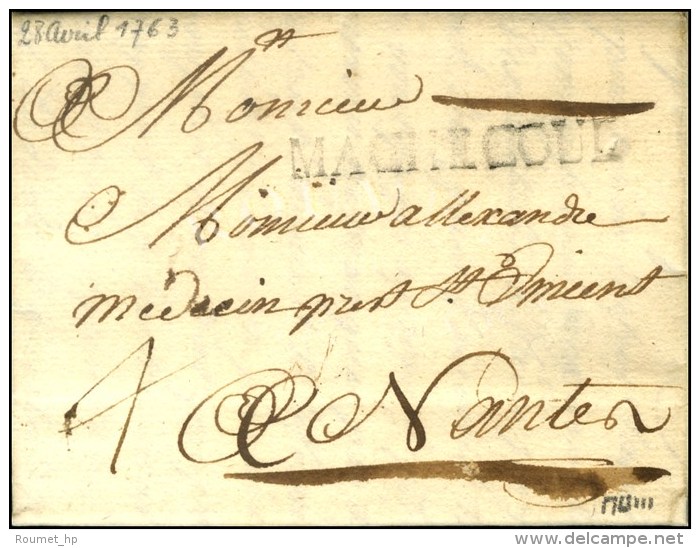 28 avril 1763
A Monsieur
MACHECOUL
Monsieur allexandre
médecin prest st Vincent
4
A Nantes
Roumet_hp
www.delcampe.net